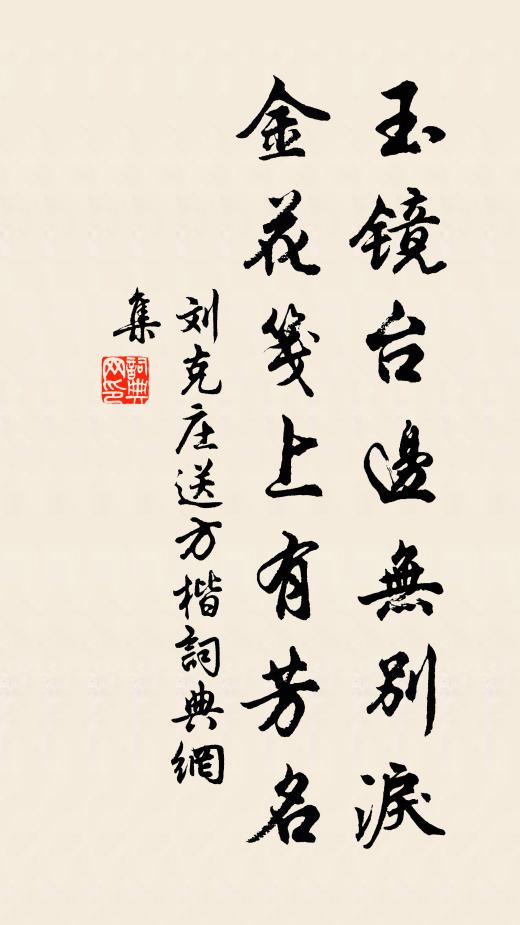 玉镜台邊無别淚
金花箋上有芳名
刘克庄送方楷詞典網
集
詞典
网印